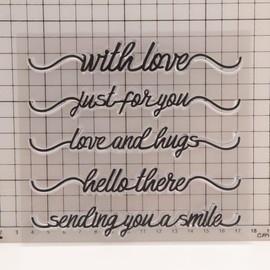 with love
just for you
love and hugs
hello there
sending you a smile
4 5 6 7 8 9 10 11 12 13 14 15 16 17 18
cm